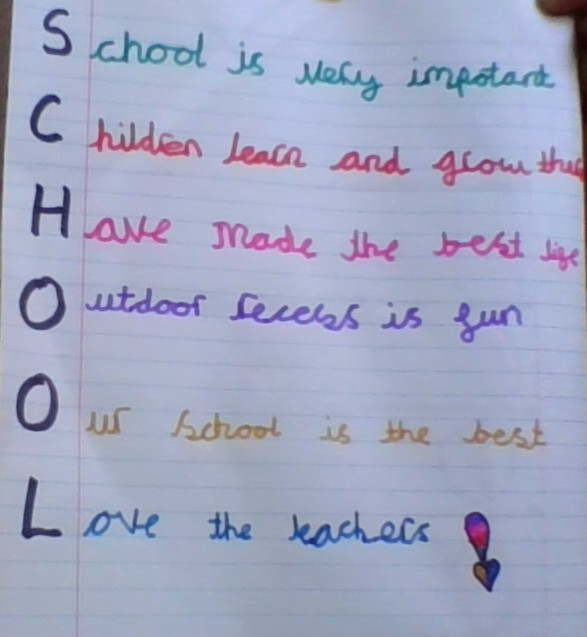 School is very impotant
Childen learn and grow
Have made the best life
Outdoor recess is fun
Our school is the best
Love the teachers!